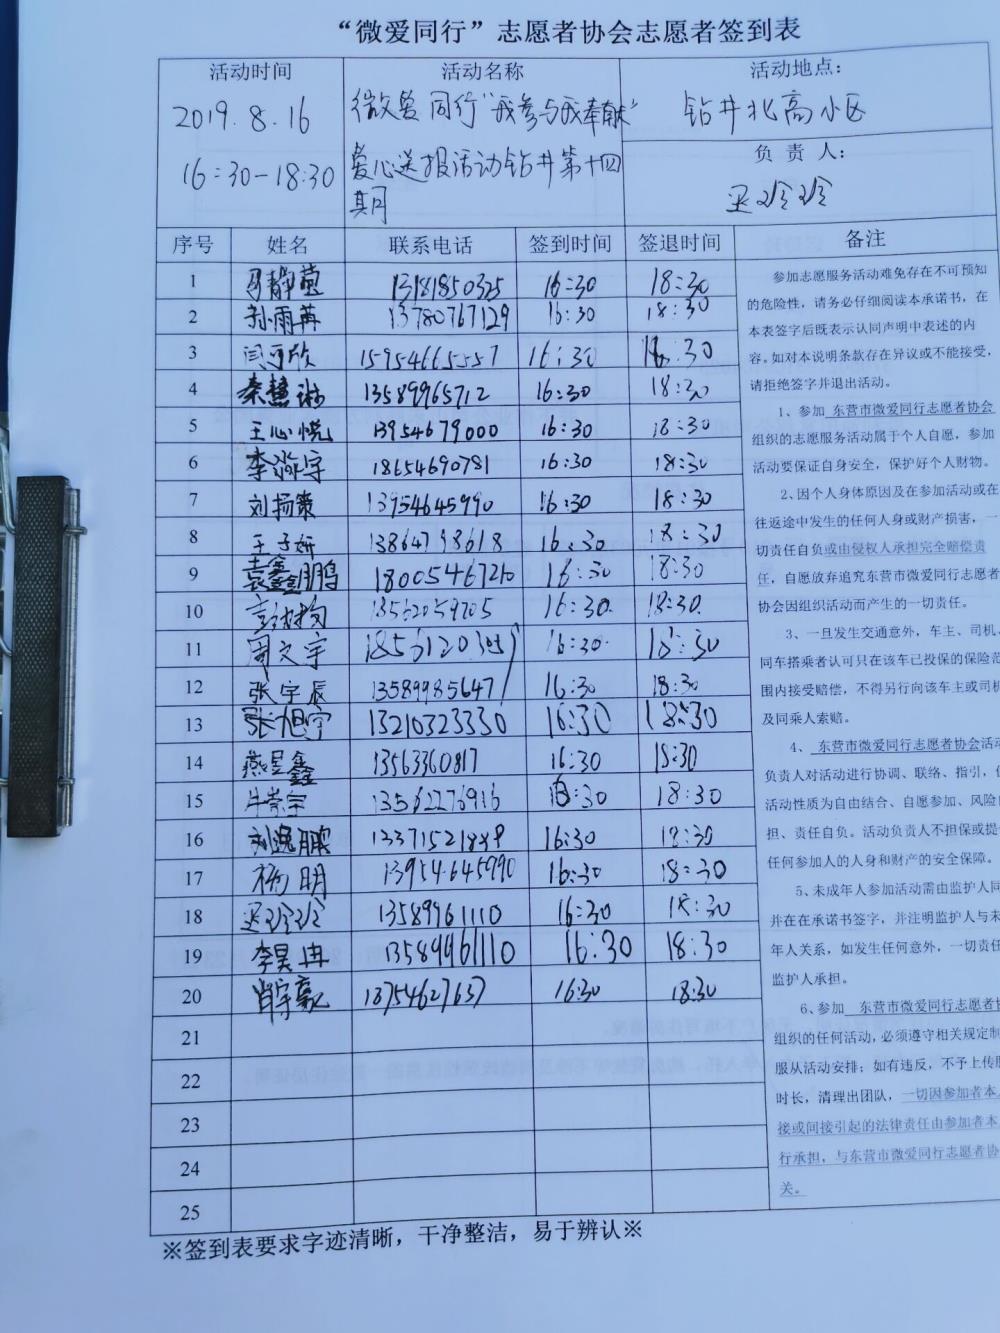 “微爱同行”志愿者协会志愿者签到表
活动时间
2019.8.16
16:30-18:30
活动名称
微爱同行“我参与我奉献”
爱心送报活动钻井第十四
期
活动地点:
钻井北高小区
负责人:
序号 姓名 联系电话 签到时间 签退时间 备注
1 13181850325 16:30 18:30
2 孙雨苒 13780767129 16:30 18:30
3 闫可欣 15954665557 16:30 18:30
4 秦慧 13589965712 16:30 18:30
5 王心悦 13954679000 16:30 18:30
6 李淼宇 18654690781 16:30 18:30
7 刘扬策 13954645990 16:30 18:30
8 王子妍 13864798618 16:30 18:30
9 袁鑫鹏 16:30 18:30
10 13562059705 16:30 18:30
11 周文宇 16:30 18:30
12 张宇辰 13589985647 16:30 18:30
13 张旭宇 13210323330 16:30 18:30
14 燕昱鑫 13563360817 16:30 18:30
15 牛崇宇 13562276916 16:30 18:30
16 刘逸鹏 16:30 18:30
17 杨明 13954645990 16:30 18:30
18 13589961110 16:30 18:30
19 李昊冉 13589961110 16:30 18:30
20 肖宇豪 18754627637 16:30 18:30
21
22
23
24
25
参加志愿服务活动难免存在不可预知
的危险性，请务必仔细阅读本承诺书，在
本表签字后既表示认同声明中表述的内
容。如对本说明条款存在异议或不能接受，
请拒绝签字并退出活动。
1、参加 东营市微爱同行志愿者协会
组织的志愿服务活动属于个人自愿，参加
活动要保证自身安全，保护好个人财物。
2、因个人身体原因及在参加活动或在
往返途中发生的任何人身或财产损害，一
切责任自负或由侵权人承担完全赔偿责
任，自愿放弃追究东营市微爱同行志愿者
协会因组织活动而产生的一切责任。
3、一旦发生交通意外，车主、司机、
同车搭乘者认可只在该车已投保的保险范
围内接受赔偿，不得另行向该车主或司机
及同乘人索赔。
4、 东营市微爱同行志愿者协会活动
负责人对活动进行协调、联络、指引，
活动性质为自由结合、自愿参加、风险
担、责任自负。活动负责人不担保或提
任何参加人的人身和财产的安全保障。
5、未成年人参加活动需由监护人同
并在在承诺书签字，并注明监护人与未
年人关系，如发生任何意外，一切责任
监护人承担。
6、参加 东营市微爱同行志愿者协
组织的任何活动，必须遵守相关规定制
服从活动安排；如有违反，不予上传
时长，清理出团队，一切因参加者本
接或间接引起的法律责任由参加者本
行承担，与东营市微爱同行志愿者协
关。
※签到表要求字迹清晰，干净整洁，易于辨认※